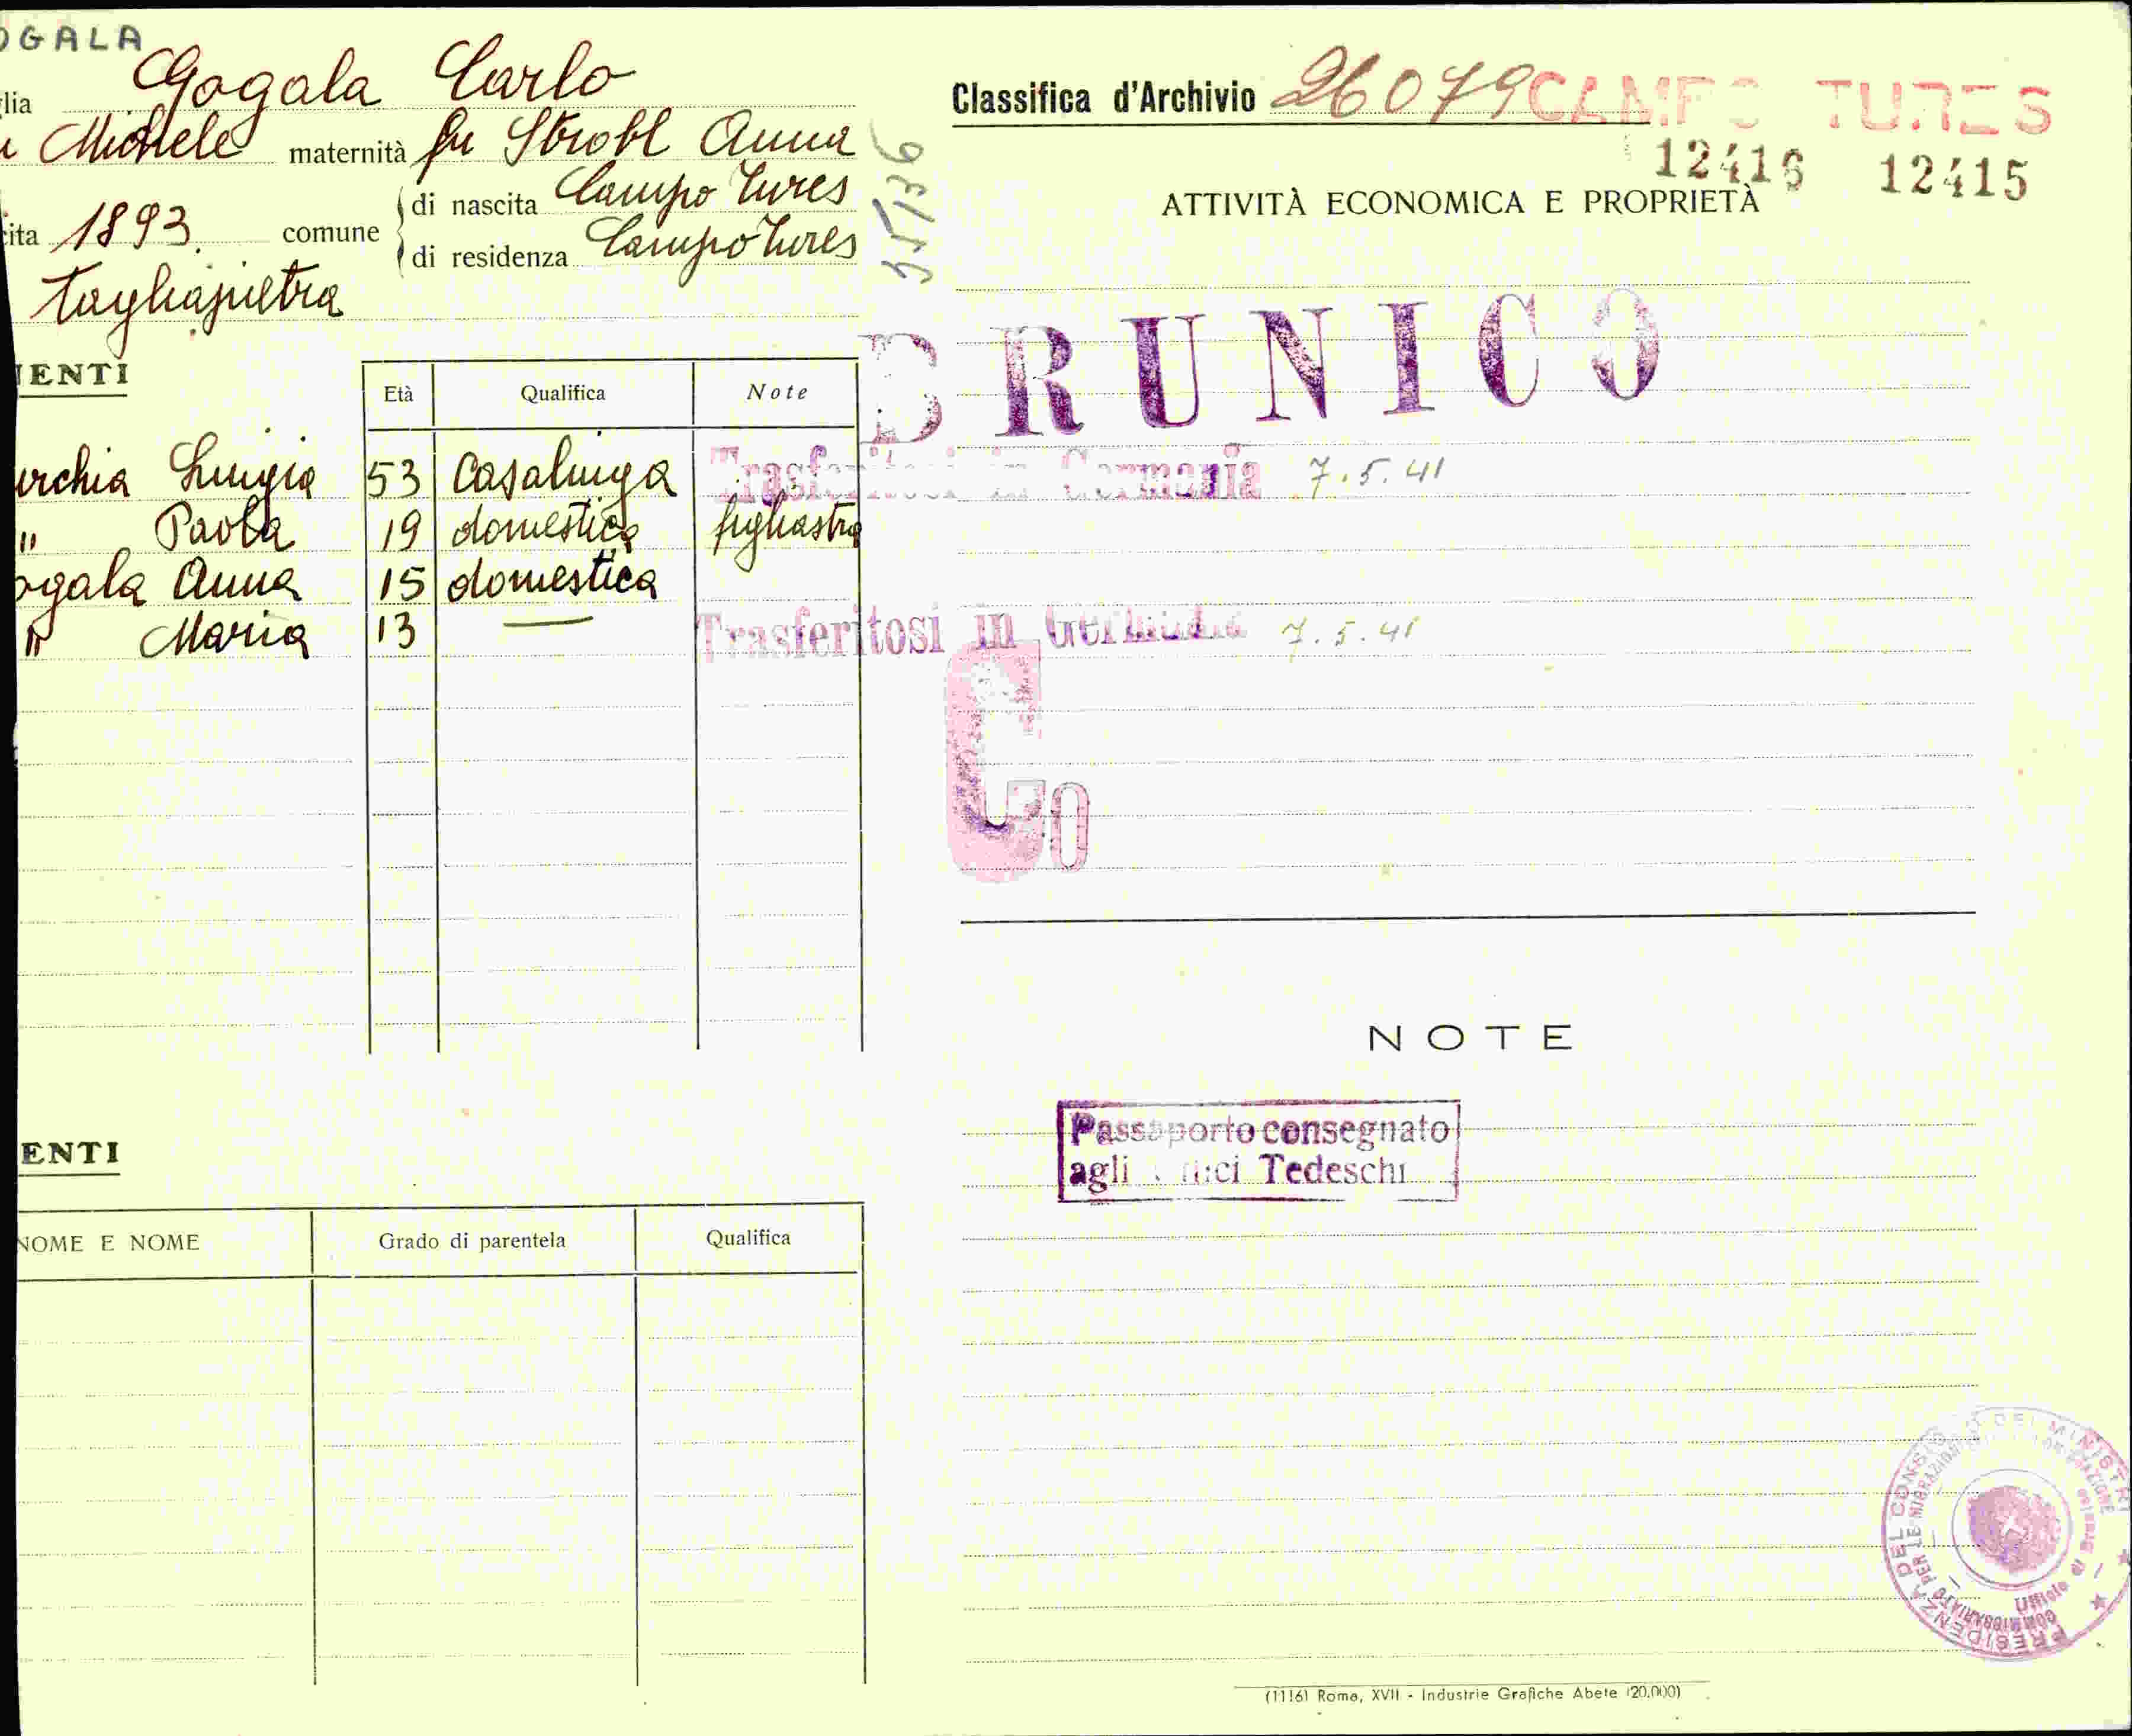 OGALA
lia Gogala Carlo
Michele maternità fu Strobl Anna
cita 1893. comune di nascita Campo Tures
di residenza Campo Tures
tagliapietra
35136
ENTI
Età Qualifica Note
Luigia 53 Casalinga
" Paola 19 domestica figliastra
ogala Anna 15 domestica
" Maria 13 —
ENTI
NOME E NOME Grado di parentela Qualifica
Classifica d'Archivio 26079 CAMPO TURES
12416 12415
ATTIVITÀ ECONOMICA E PROPRIETÀ
BRUNICO
Trasferitosi in Germania 7.5.41
Trasferitosi in Germania 7.5.41
NOTE
Passaporto consegnato
agli Uffici Tedeschi
PRESIDENZA DEL CONSIGLIO DEI MINISTRI
COMMISSARIATO PER LE MIGRAZIONI
Ufficio di
(1116) Roma, XVII - Industrie Grafiche Abete (20.000)